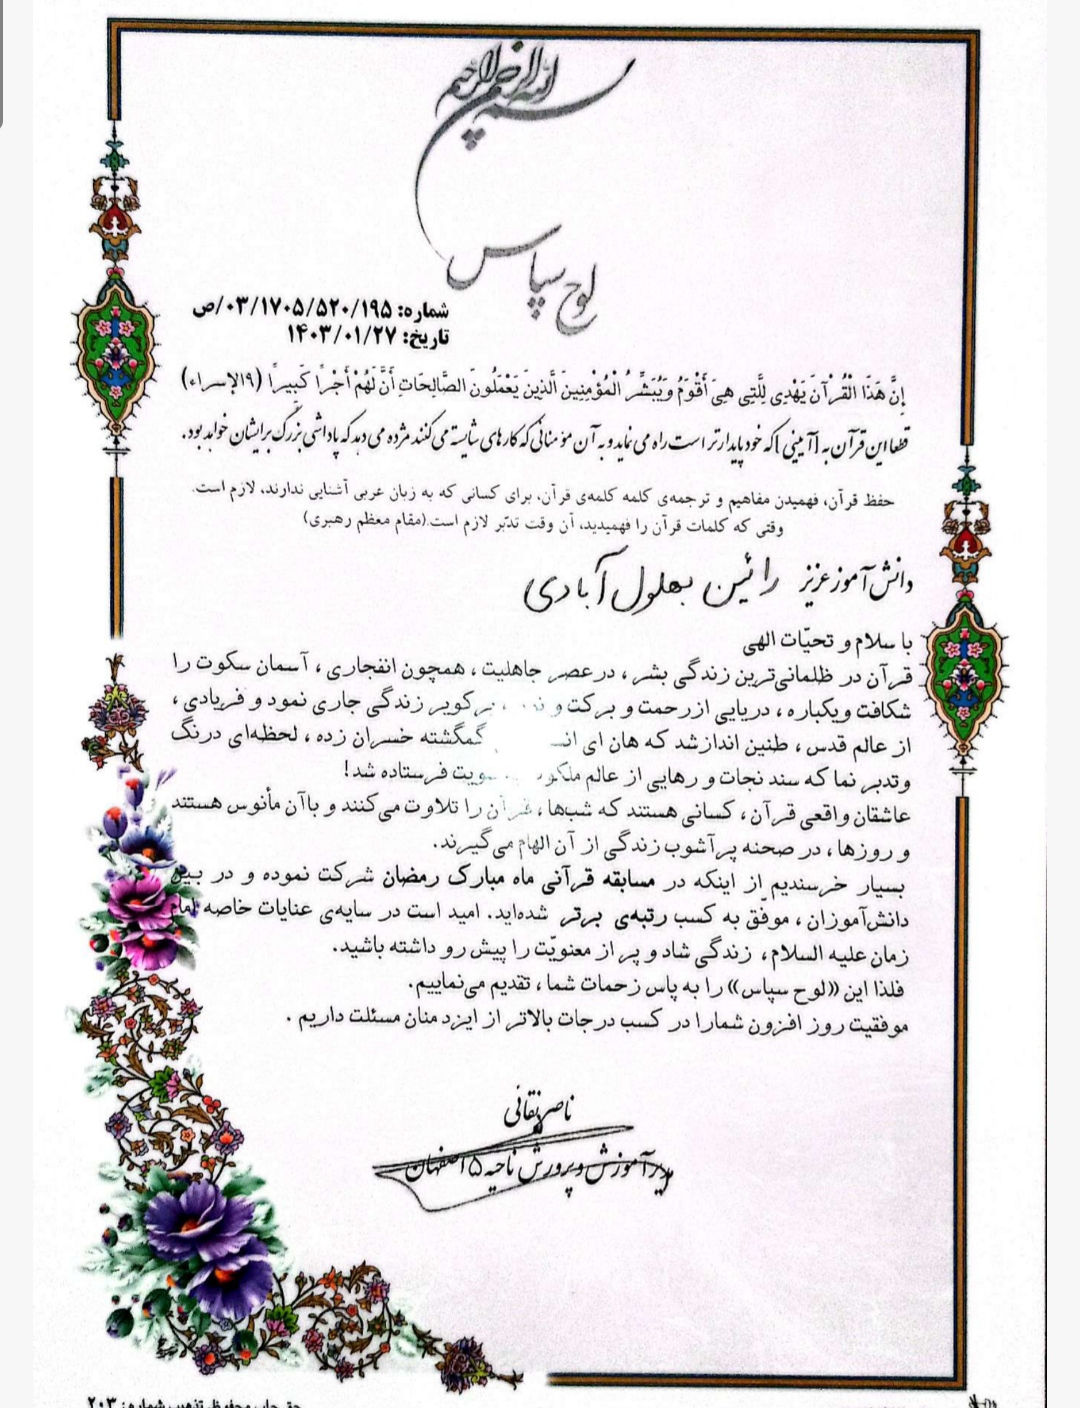 بسم الله الرحمن الرحیم
لوح سپاس
شماره: ۰۳/۱۷۰۵/۵۲۰/۱۹۵/ص
تاریخ: ۱۴۰۳/۰۱/۲۷
إِنَّ هَذَا الْقُرْآنَ يَهْدِی لِلَّتِی هِیَ أَقْوَمُ وَيُبَشِّرُ الْمُؤْمِنِينَ الَّذِينَ يَعْمَلُونَ الصَّالِحَاتِ أَنَّ لَهُمْ أَجْرًا كَبِيرًا (۹الإسراء)
قطعا این قرآن به [آیینی] که خود پایدارتر است راه می نماید و به آن مؤمنانی که کارهای شایسته می کنند مژده می دهد که پاداشی بزرگ برایشان خواهد بود.
حفظ قرآن، فهمیدن مفاهیم و ترجمه‌ی کلمه کلمه‌ی قرآن، برای کسانی که به زبان عربی آشنایی ندارند، لازم است.
وقتی که کلمات قرآن را فهمیدید، آن وقت تدبّر لازم است.(مقام معظم رهبری)
دانش آموز عزیز رائین بهلول آبادی
با سلام و تحیّات الهی
قرآن در ظلمانی‌ترین زندگی بشر، در عصر جاهلیت، همچون انفجاری، آسمان سکوت را
شکافت و یکباره، دریایی از رحمت و برکت و بر کویر زندگی جاری نمود و فریادی،
از عالم قدس، طنین انداز شد که هان ای گمگشته خسران زده، لحظه‌ای درنگ
و تدبر نما که سند نجات و رهایی از عالم ملکوت به سویت فرستاده شد!
عاشقان واقعی قرآن، کسانی هستند که شب‌ها، قرآن را تلاوت می‌کنند و با آن مأنوس هستند
و روزها، در صحنه پرآشوب زندگی از آن الهام می‌گیرند.
بسیار خرسندیم از اینکه در مسابقه قرآنی ماه مبارک رمضان شرکت نموده و در بین
دانش‌آموزان، موفّق به کسب رتبه‌ی برتر شده‌اید. امید است در سایه‌ی عنایات خاصه امام
زمان علیه السلام، زندگی شاد و پر از معنویّت را پیش رو داشته باشید.
فلذا این «لوح سپاس» را به پاس زحمات شما، تقدیم می‌نماییم.
موفقیت روز افزون شما را در کسب درجات بالاتر از ایزد منان مسئلت داریم.
ناصر نقانی
مدیر آموزش و پرورش ناحیه ۵ اصفهان